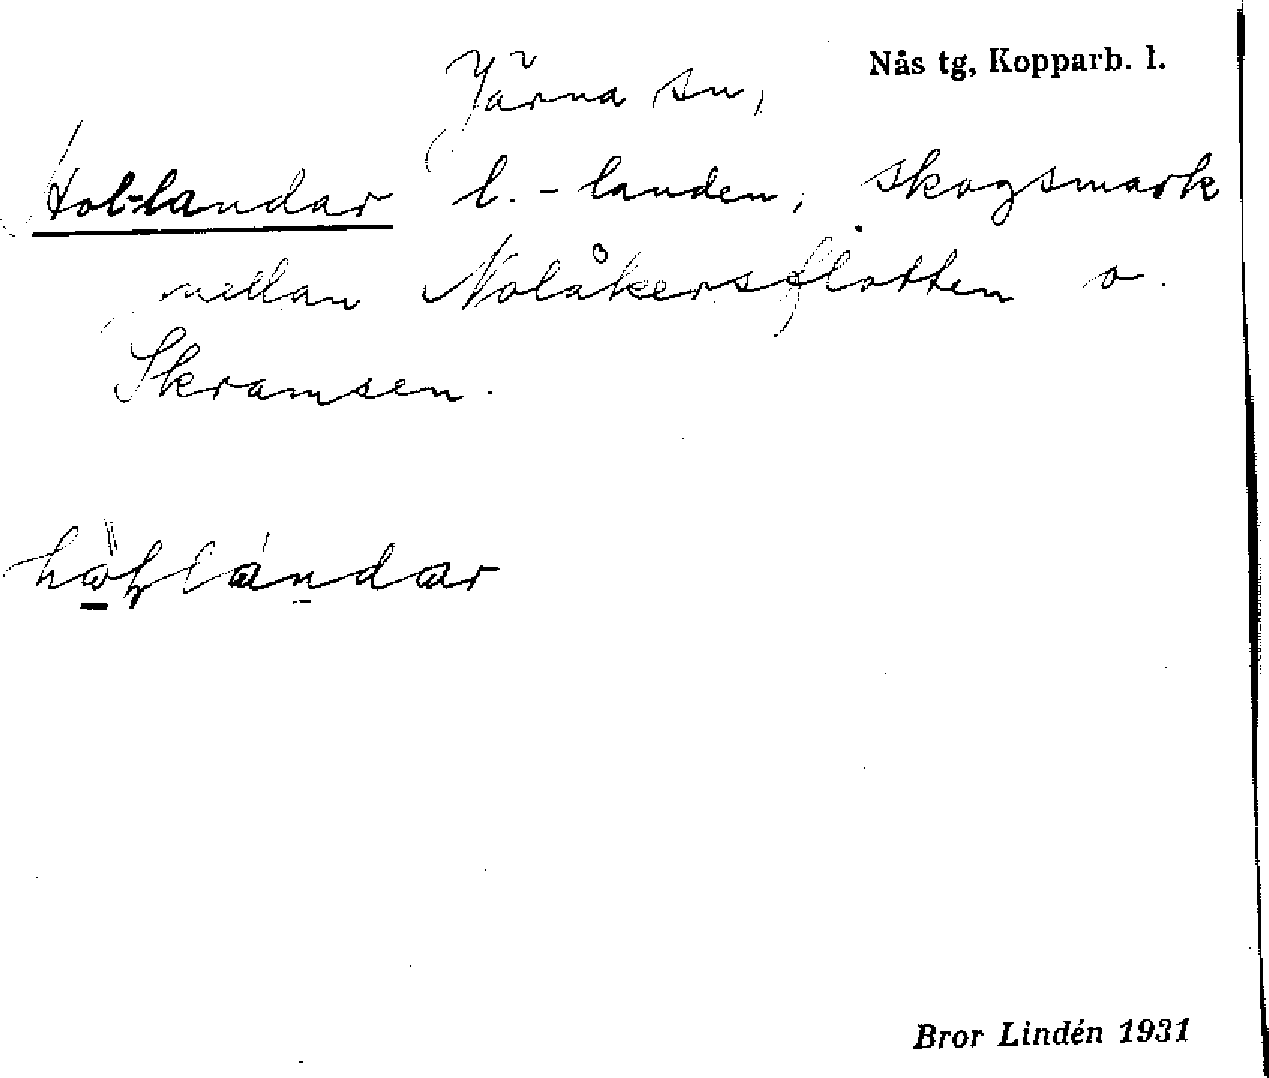 Järna sn, Nås tg, Kopparb. l.
Hol-landar l. -landen, skogsmark
mellan Nolåkersflotten o.
Skramsen.
Bror Lindén 1931